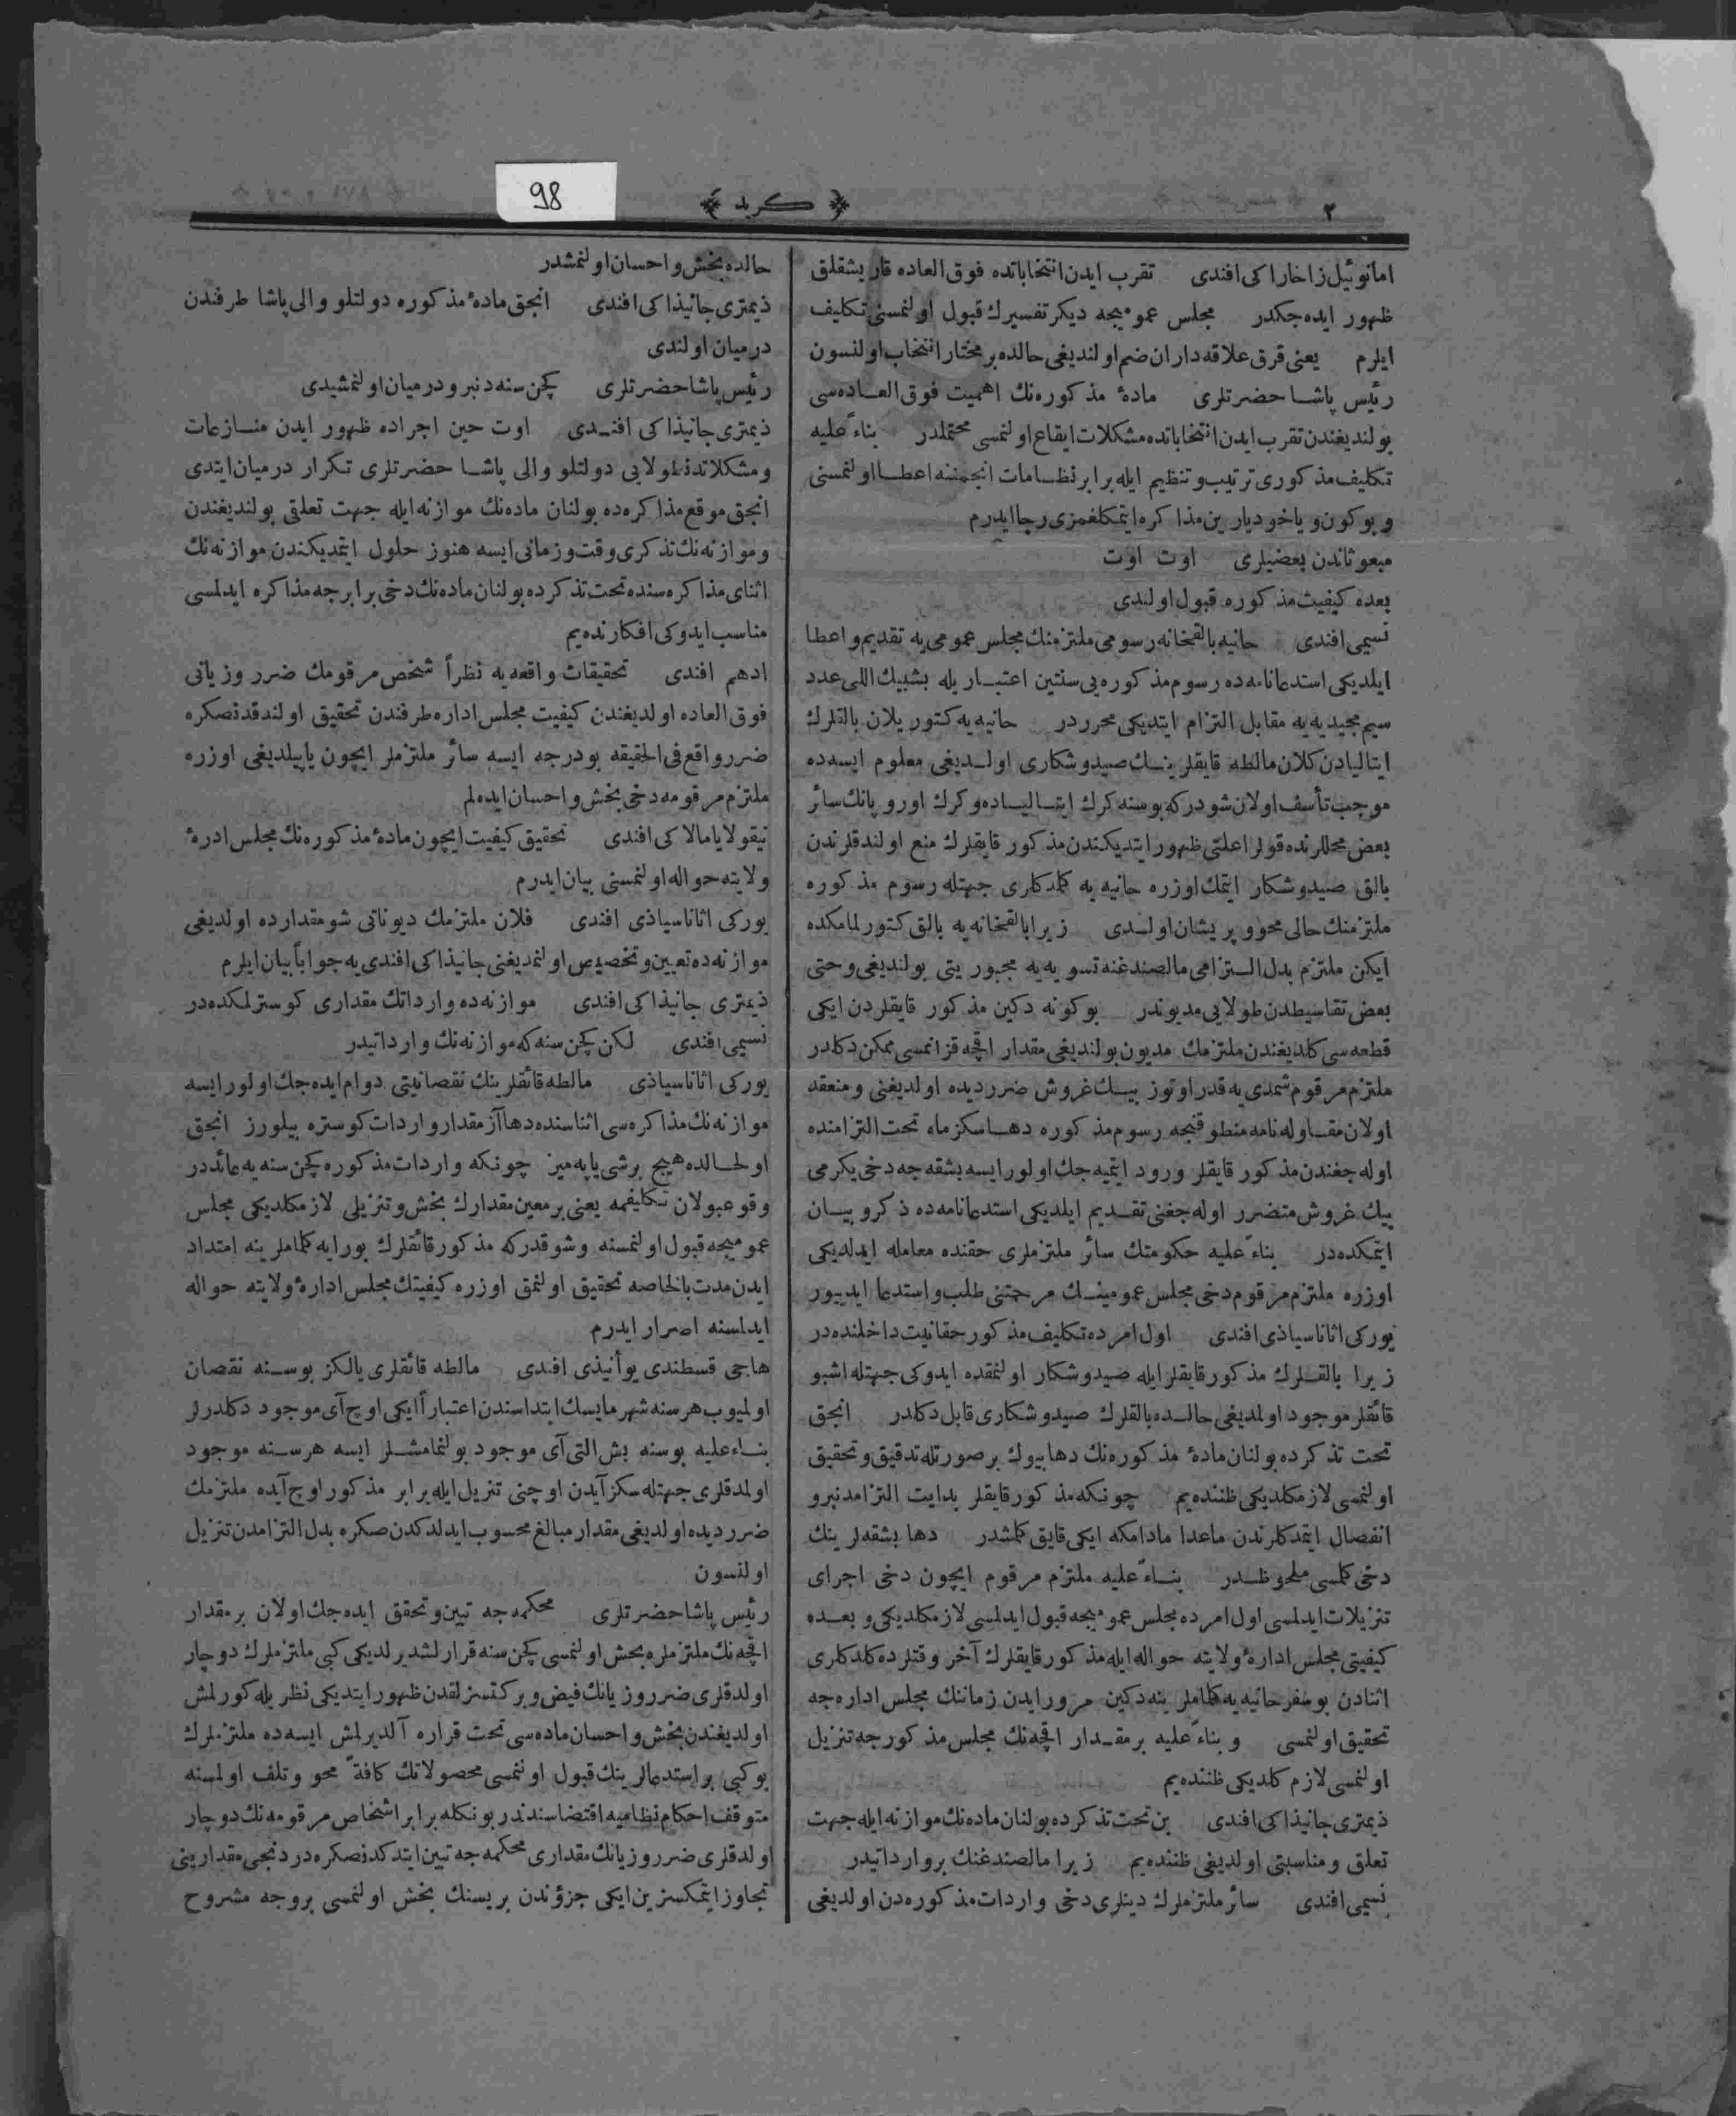 ٢
﴿ كريد ﴾
98
امانوئيل زاخاراكى افندى تقرب ايدن انتخاباتده فوق العاده قاريشقلق
ظهور ايده‌جكدر مجلس عموميجه ديكر تفسيرك قبول اولنمسنى تكليف
ايلرم يعنى قرق علاقه‌داران ضم اولنديغى حالده بر مختار انتخاب اولنسون
رئيس پاشا حضرتلرى مادۀ مذكوره‌نك اهميت فوق العاده‌سى
بولنديغندن تقرب ايدن انتخاباتده مشكلات ايقاع اولنمسى محتملدر بناءً عليه
تكليف مذكورى ترتيب و تنظيم ايله برابر نظامات انجمننه اعطا اولنمسنى
و بوكون و ياخود يارين مذاكره ايتمكلغمزى رجا ايدرم
مبعوثاندن بعضيلرى اوت اوت
بعده كيفيت مذكوره قبول اولندى
نسيمى افندى حانيه بالقخانه رسومى ملتزمنك مجلس عمومى‌يه تقديم و اعطا
ايلديكى استدعانامه‌ده رسوم مذكوره‌يى سنتين اعتباريله بشبيك اللى عدد
سيم مجيديه‌يه مقابل التزام ايتديكى محرردر حانيه‌يه كتوريلان بالقلرك
ايتاليادن كلان مالطه قايقلرينك صيد و شكارى اولديغى معلوم ايسه‌ده
موجب تأسف اولان شودركه بوسنه كرك ايتالياده و كرك اوروپانك سائر
بعض محللرنده قولرا علتى ظهور ايتديكندن مذكور قايقلرك منع اولندقلرندن
بالق صيد و شكار ايتمك اوزره حانيه‌يه كلمدكلرى جهتله رسوم مذكوره
ملتزمنك حالى محو و پريشان اولدى زيرا بالقخانه‌يه بالق كتورلمامكده
ايكن ملتزم بدل التزامى مالصندغنه تسويه‌يه مجبوريتى بولنديغى و حتى
بعض تقاسيطدن طولايى مديوندر بوكونه دكين مذكور قايقلردن ايكى
قطعه‌سى كلديغندن ملتزمك مديون بولنديغى مقدار اقچه قزانمسى ممكن دكلدر
ملتزم مرقوم شمدى‌يه قدر اوتوز بيك غروش ضررديده اولديغنى و منعقد
اولان مقاوله‌نامه منطوقنجه رسوم مذكوره دها سكز ماه تحت التزامنده
اوله‌جغندن مذكور قايقلر ورود ايتميه‌جك اولور ايسه بشقه‌جه دخى يكرمى
بيك غروش متضرر اوله‌جغنى تقديم ايلديكى استدعانامه‌ده ذكر و بيان
ايتمكده‌در بناءً عليه حكومتك سائر ملتزملرى حقنده معامله ايلديكى
اوزره ملتزم مرقوم دخى مجلس عمومينك مرحمتنى طلب و استدعا ايدييور
يوركى اثاناسياذى افندى اول امرده تكليف مذكور حقانيت داخلنده‌در
زيرا بالقلرك مذكور قايقلر ايله صيد و شكار اولنمقده ايدوكى جهتله اشبو
قائقلر موجود اولمديغى حالده بالقلرك صيد و شكارى قابل دكلدر انجق
تحت تذكرده بولنان مادۀ مذكوره‌نك دها بيوك بر صورتله تدقيق و تحقيق
اولنمسى لازمكلديكى ظننده‌يم چونكه مذكور قايقلر بدايت التزامدنبرو
انفصال ايتمدكلرندن ماعدا مادامكه ايكى قايق كلمشدر دها بشقه‌لرينك
دخى كلمسى ملحوظدر بناءً عليه ملتزم مرقوم ايچون دخى اجراى
تنزيلات ايدلمسى اول امرده مجلس عموميجه قبول ايدلمسى لازمكلديكى و بعده
كيفيتى مجلس ادارۀ ولايته حواله ايله مذكور قايقلرك آخر وقتلرده كلدكلرى
اثنادن بوسفر حانيه‌يه كلماملرينه دكين مرور ايدن زمانك مجلس اداره‌جه
تحقيق اولنمسى و بناءً عليه بر مقدار اقچه‌نك مجلس مذكورجه تنزيل
اولنمسى لازم كلديكى ظننده‌يم
ذيمترى جانيذاكى افندى بن تحت تذكرده بولنان ماده‌نك موازنه ايله جهت
تعلق و مناسبتى اولديغى ظننده‌يم زيرا مالصندغنك بر وارداتيدر
نسيمى افندى سائر ملتزملرك دينلرى دخى واردات مذكوره‌دن اولديغى
حالده بخش و احسان اولنمشدر
ذيمترى جانيذاكى افندى انجق مادۀ مذكوره دولتلو والى پاشا طرفندن
درميان اولندى
رئيس پاشا حضرتلرى كچن سنه‌دنبرو درميان اولنمشيدى
ذيمترى جانيذاكى افندى اوت حين اجراده ظهور ايدن منازعات
و مشكلاتدن طولايى دولتلو والى پاشا حضرتلرى تكرار درميان ايتدى
انجق موقع مذاكره‌ده بولنان ماده‌نك موازنه ايله جهت تعلقى بولنديغندن
و موازنه‌نك تذكرى وقت و زمانى ايسه هنوز حلول ايتمديكندن موازنه‌نك
اثناى مذاكره‌سنده تحت تذكرده بولنان ماده‌نك دخى برابرجه مذاكره ايدلمسى
مناسب ايدوكى افكارنده‌يم
ادهم افندى تحقيقات واقعه‌يه نظراً شخص مرقومك ضرر و زيانى
فوق العاده اولديغندن كيفيت مجلس اداره طرفندن تحقيق اولندقدنصكره
ضرر واقع فى الحقيقه بودرجه ايسه سائر ملتزملر ايچون ياپيلديغى اوزره
ملتزم مرقومه دخى بخش و احسان ايده‌لم
نيقولا يامالاكى افندى تحقيق كيفيت ايچون مادۀ مذكوره‌نك مجلس ادرۀ
ولايته حواله اولنمسنى بيان ايدرم
يوركى اثاناسياذى افندى فلان ملتزمك ديوناتى شو مقدارده اولديغى
موازنه‌ده تعيين و تخصيص اولنمديغنى جانيذاكى افندى‌يه جواباً بيان ايلرم
ذيمترى جانيذاكى افندى موازنه‌ده وارداتك مقدارى كوسترلمكده‌در
نسيمى افندى لكن كچن سنه‌كه موازنه‌نك وارداتيدر
يوركى اثاناسياذى مالطه قائقلرينك نقصانيتى دوام ايده‌جك اولور ايسه
موازنه‌نك مذاكره‌سى اثناسنده دها آز مقدار واردات كوستره بيلورز انجق
اولحالده هيچ برشى ياپه‌ميز چونكه واردات مذكوره كچن سنه‌يه عائددر
وقوعبولان تكليفمه يعنى بر معين مقدارك بخش و تنزيلى لازمكلديكى مجلس
عموميجه قبول اولنمسنه و شوقدركه مذكور قائقلرك بورايه كلماملرينه امتداد
ايدن مدت بالخاصه تحقيق اولنمق اوزره كيفيتك مجلس ادارۀ ولايته حواله
ايدلمسنه اصرار ايدرم
هاجى قسطندى يوآنيذى افندى مالطه قائقلرى يالكز بوسنه نقصان
اولميوب هر سنه شهر مايسك ابتداسندن اعتباراً ايكى اوچ آى موجود دكلدرلر
بناءً عليه بوسنه بش التى آى موجود بولنمامشلر ايسه هر سنه موجود
اولمدقلرى جهتله سكز آيدن اوچنى تنزيل ايله برابر مذكور اوچ آيده ملتزمك
ضررديده اولديغى مقدار مبالغ محسوب ايدلدكدن صكره بدل التزامدن تنزيل
اولنسون
رئيس پاشا حضرتلرى محكمه‌جه تبين و تحقق ايده‌جك اولان بر مقدار
اقچه‌نك ملتزملره بخش اولنمسى كچن سنه قرارلشديرلديكى كبى ملتزملرك دوچار
اولدقلرى ضرر و زيانك فيض و بركتسزلقدن ظهور ايتديكى نظريله كورلمش
اولديغندن بخش و احسان ماده‌سى تحت قراره آلديرلمش ايسه‌ده ملتزملرك
بوكبى بر استدعالرينك قبول اولنمسى محصولاتك كافةً محو و تلف اولمسنه
متوقف احكام نظاميه اقتضاسندندر بونكله برابر اشخاص مرقومه‌نك دوچار
اولدقلرى ضرر و زيانك مقدارى محكمه‌جه تبين ايتدكدنصكره دردنجى مقدارينى
تجاوز ايتمكسزين ايكى جزؤندن بريسنك بخش اولنمسى بروجه مشروح